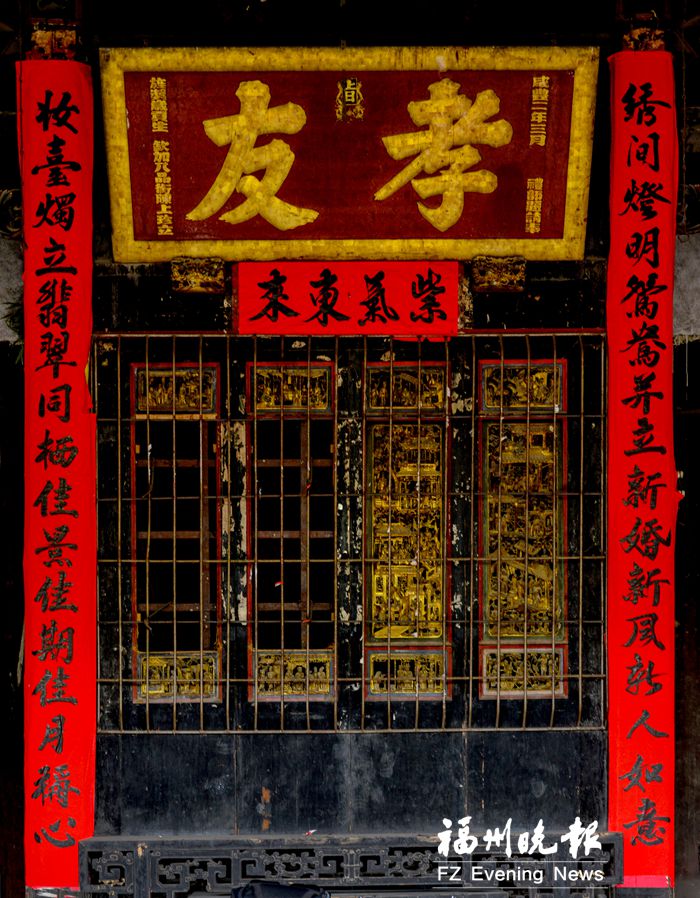 孝友
咸豐二年三月
欽加九品銜陳上珍立
紫氣東來
绣间燈明鴛鴦并立新婚新風新人如意
妆臺燭立翡翠同栖佳景佳期佳月稱心
福州晚报
FZ Evening News